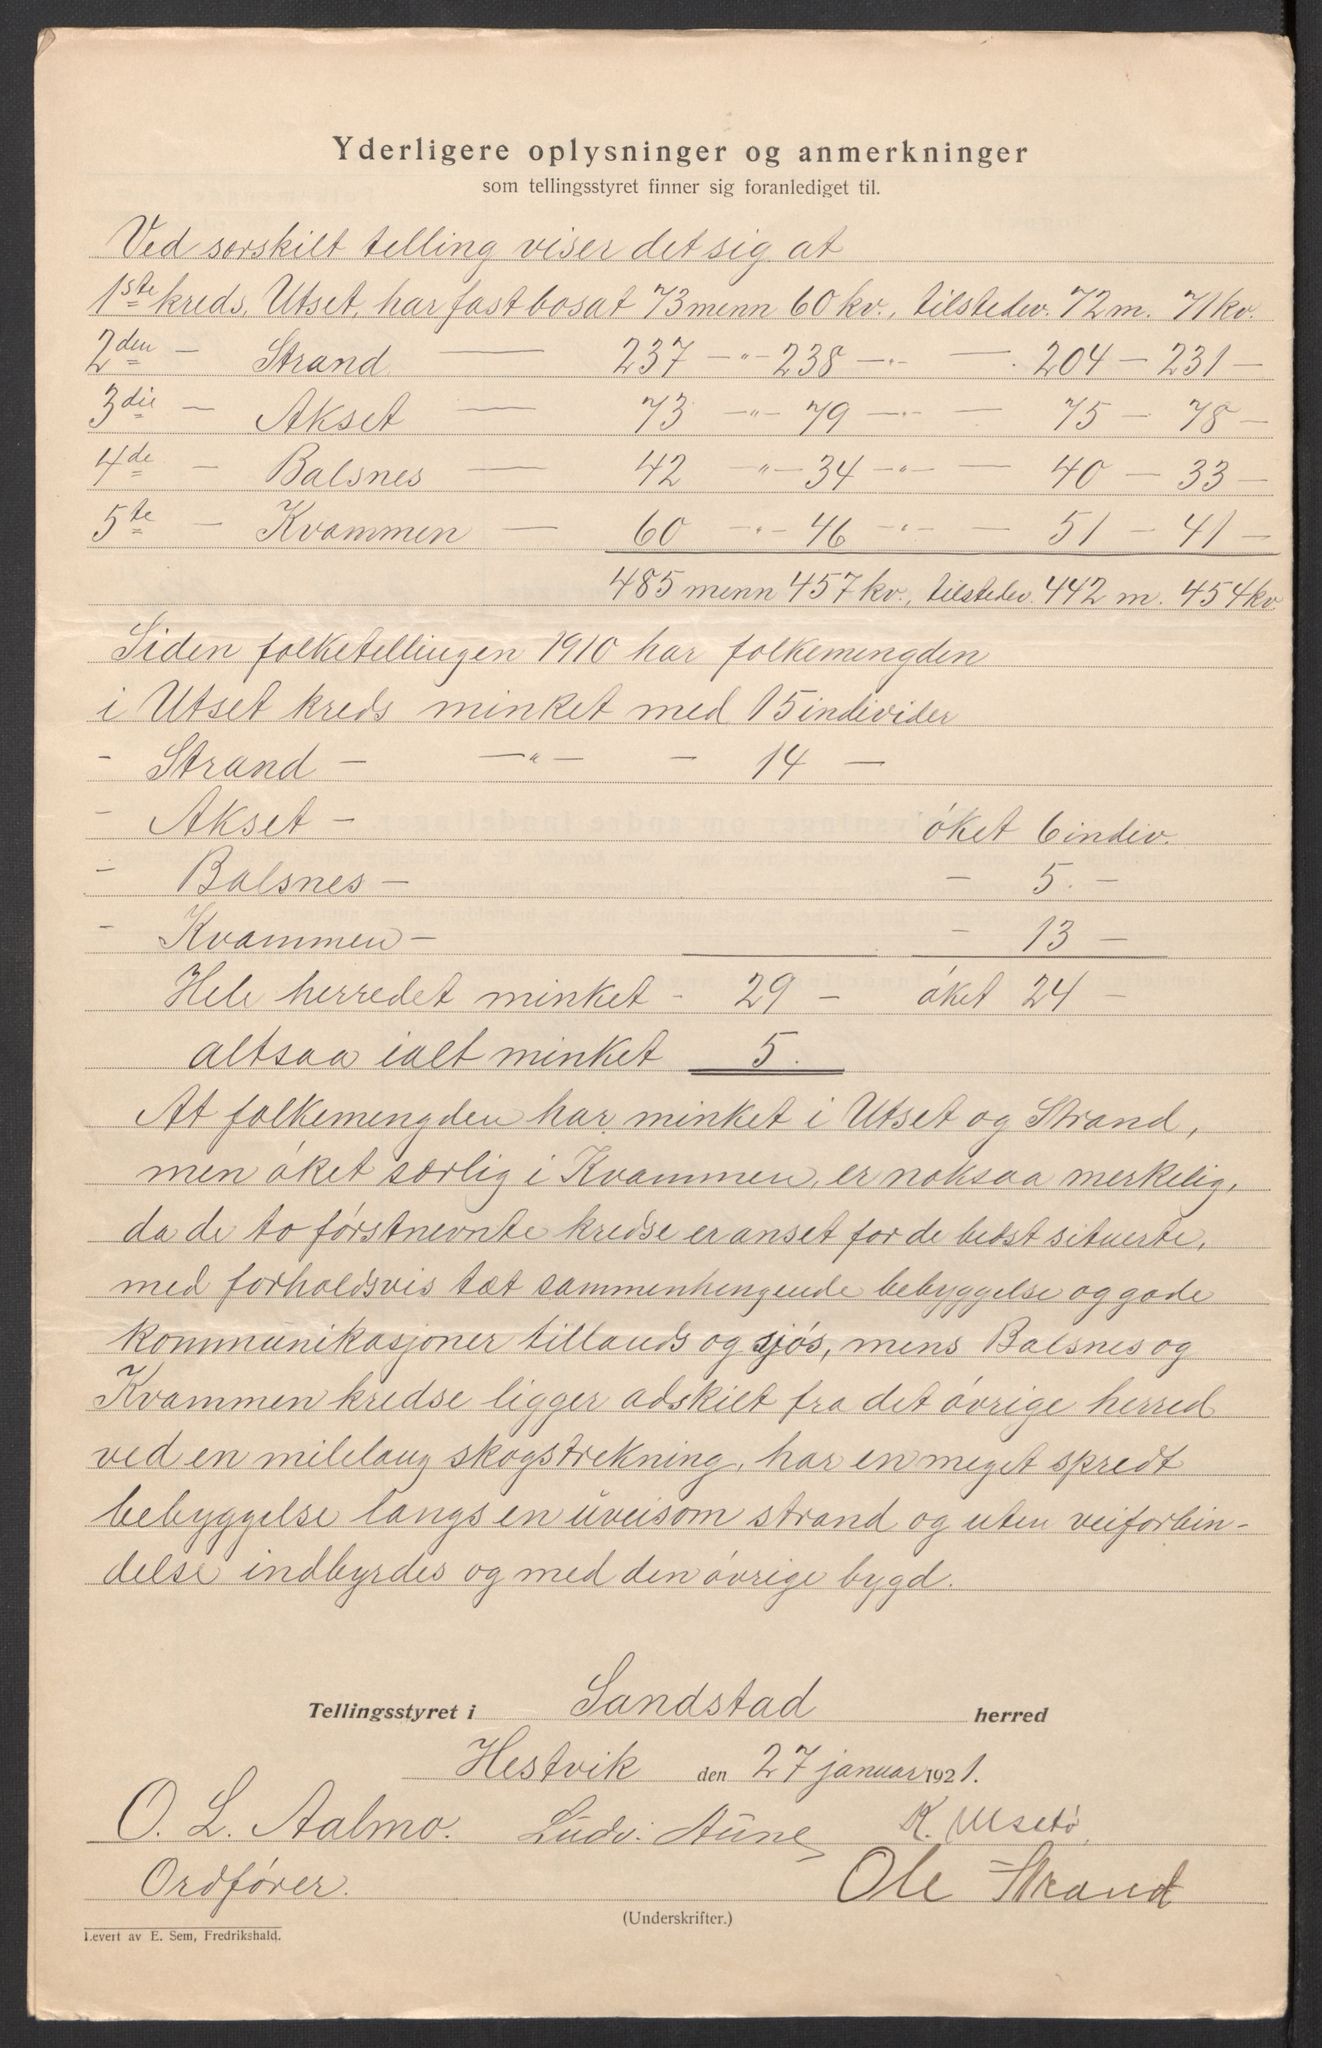 Yderligere oplysninger og anmerkninger
som tellingsstyret finner sig foranlediget til.
Ved særskilt telling viser det sig at
1ste kreds, Utset, har fastbosat 73 menn 60 kv., tilstedev. 72 m. 71 kv.
2den — Strand — 237 —"— 238 —"— — 204 — 231 —
3die — Akset — 73 —"— 79 —"— — 75 — 78 —
4de — Balsnes — 42 "— 34 —"— — 40 — 33 —
5te — Kvammen — 60 —"— 46 —"— — 51 — 41 —
485 menn 457 kv., tilstedev. 442 m. 454 kv
Siden folketellingen 1910 har folkemengden
i Utset kreds minket med 15 individer
- Strand — —"— — 14 —
- Akset — øket 6 indiv.
- Balsnes — — 5. —
- Kvammen — — 13 —
Hele herredet minket - 29 — øket 24 —
altsaa ialt minket 5.
At folkemengden har minket i Utset og Strand,
men øket særlig i Kvammen, er noksaa merkelig,
da de to førstnevnte kredse er anset for de bedst situerte,
med forholdsvis tæt sammenhengende bebyggelse og gode
kommunikasjoner tillands og sjøs, mens Balsnes og
Kvammen kredse ligger adskilt fra det øvrige herred
ved en milelang skogstrekning, har en meget spredt
bebyggelse langs en uveisom strand og uten veiforbin-
delse indbyrdes og med den øvrige bygd.
Tellingsstyret i Sandstad herred
Hestvik den 27 januar 1921.
O. L. Aalmo. Ludv. Aune K. Ulsetø,
Ordfører. Ole Strand
(Underskrifter.)
Levert av E. Sem, Fredrikshald.